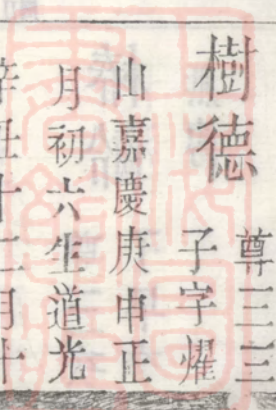 樹德
尊三三
子字燿
山嘉慶庚申正
月初六生道光
辛丑十二月十